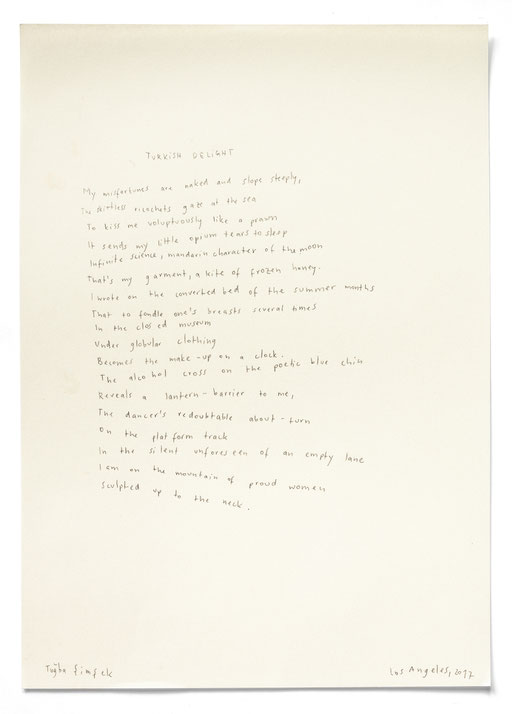 TURKISH DELIGHT
My misfortunes are naked and slope steeply,
The skirtless ricochets gaze at the sea
To kiss me voluptuously like a prawn
It sends my little opium tears to sleep
Infinite science, mandarin character of the moon
That's my garment, a kite of frozen honey.
I wrote on the converted bed of the summer months
That to fondle one's breasts several times
In the closed museum
Under globular clothing
Becomes the make-up on a clock.
The alcohol cross on the poetic blue chin
Reveals a lantern-barrier to me,
The dancer's redoubtable about-turn
On the platform track
In the silent unforeseen of an empty lane
I am on the mountain of proud women
sculpted up to the neck.
Tuğba Şimşek
Los Angeles, 2017